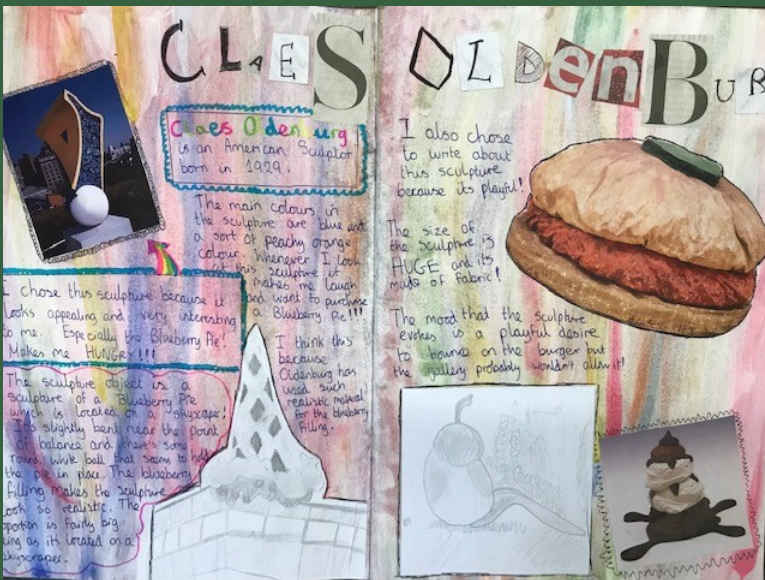 CLAES OLDENBUR
Claes Oldenburg
is an American Sculptor
born in 1929.
The main colours in
the sculpture are blue and
a sort of peachy orange
colour. Whenever I look
at this sculpture it
makes me laugh
and want to purchase
a Blueberry Pie!!!
I chose this sculpture because it
looks appealing and very interesting
to me. Especially the Blueberry Pie!
Makes me HUNGRY!!!
I think this
because
Oldenburg has
used such
realistic material
for the blueberry
filling.
The sculpture object is a
sculpture of a Blueberry Pie
which is located on a skyscraper!
It's slightly bent near the point
of balance and there's some
round, white ball that seems to hold
the pie in place. The blueberry
filling makes the sculpture
look so realistic. The
oportion is fairly big
ing as its located on a
skyscraper.
I also chose
to write about
this sculpture
because its playful!
The size of
the sculpture is
HUGE and its
made of fabric!
The mood that the sculpture
evokes is a playful desire
to bounce on the burger but
the gallery probably wouldn't allow it!